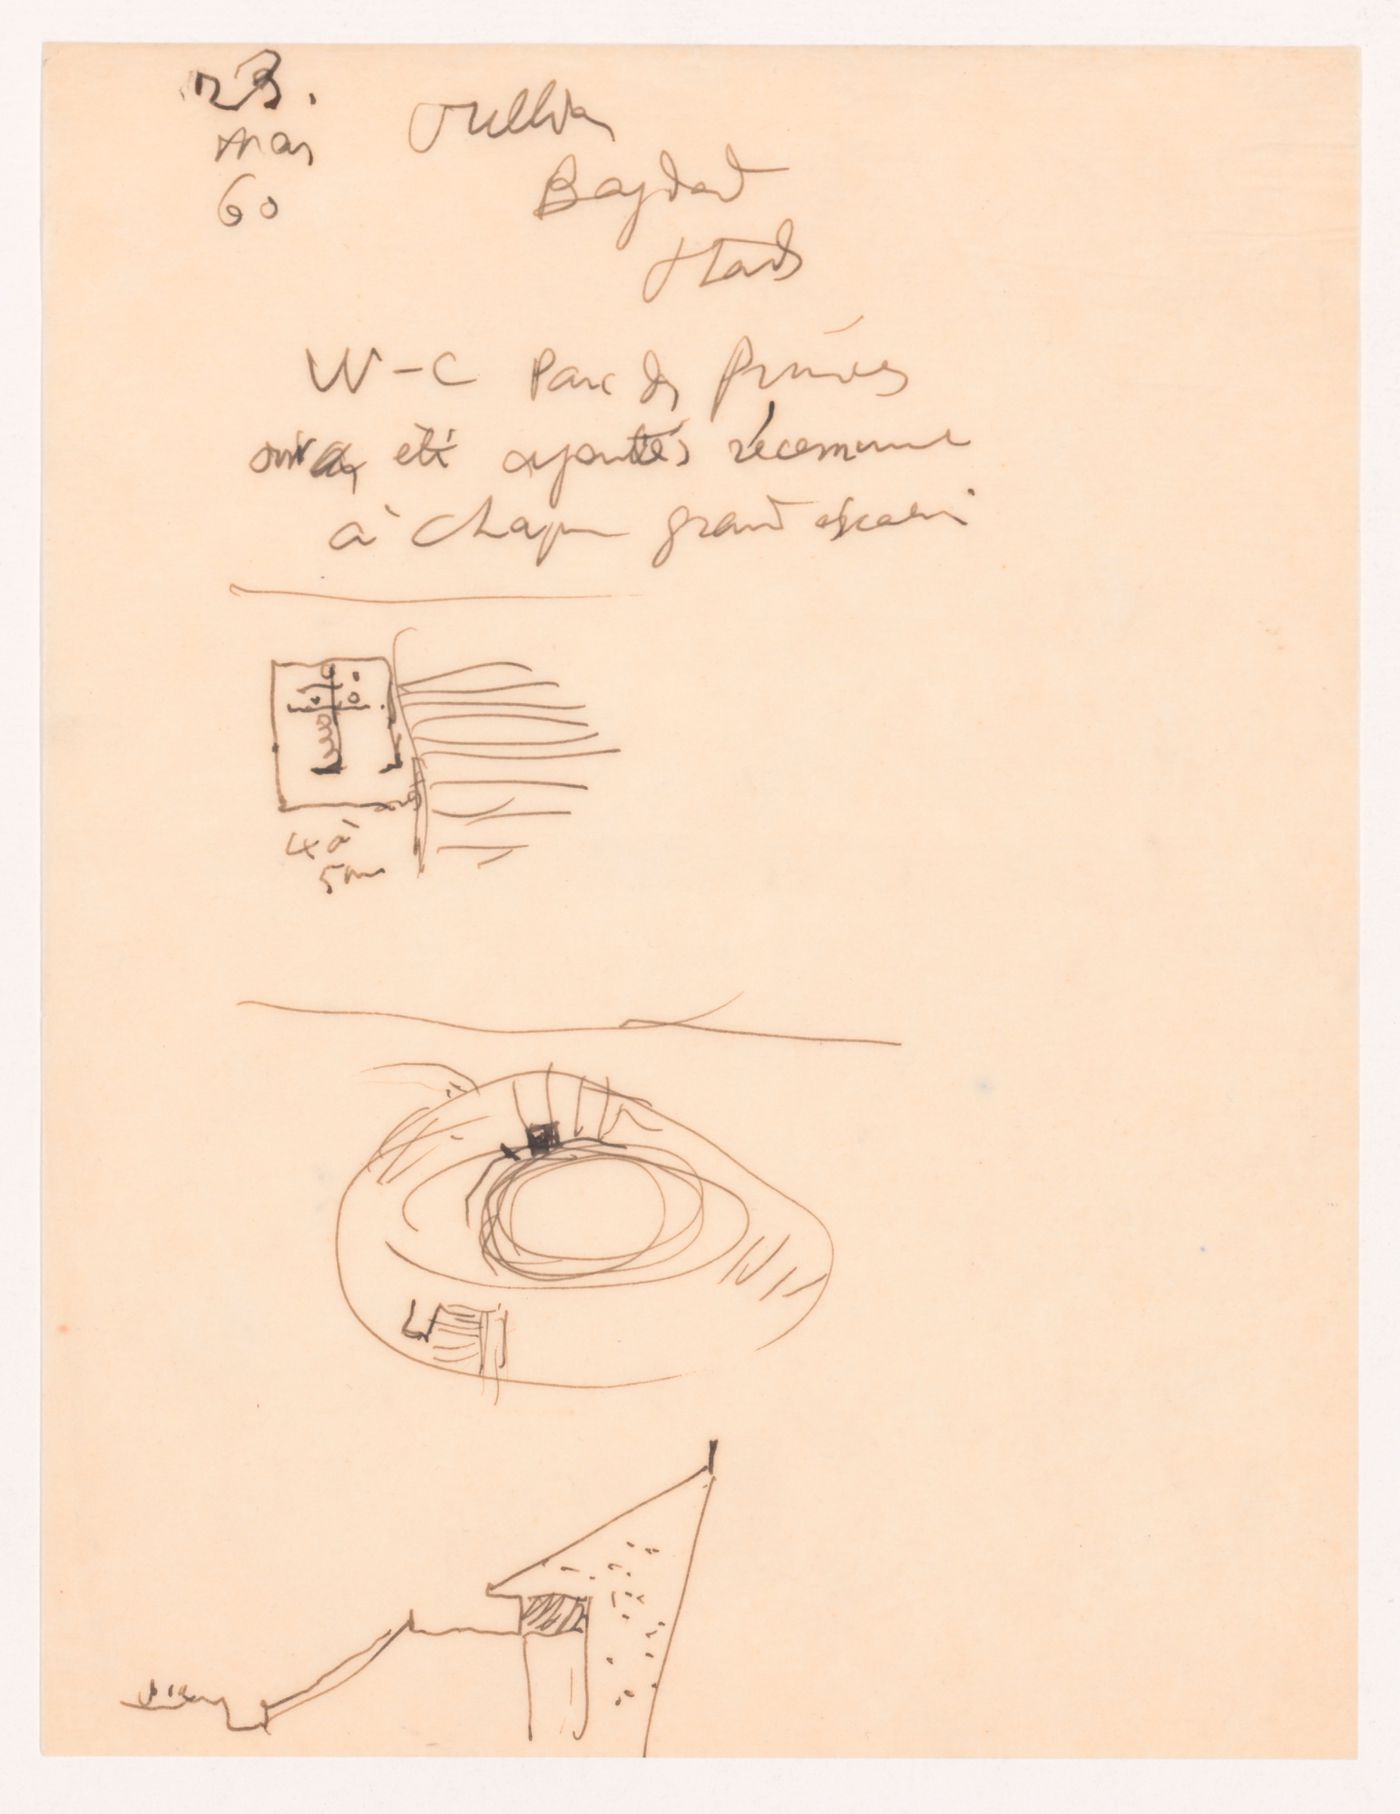 23.
mars
60
Bagdad
Stade
W-C Parc des Princes
ont été ajoutés récemment
à chaque grand escalier
4 à
5m